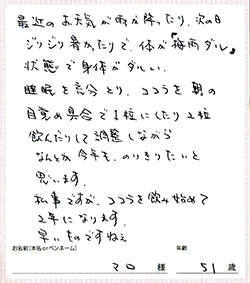 最近のお天気が雨が降ったり、次の日
ジリジリ暑かったりで、体が「梅雨ダル」
状態で身体がダルい。
睡眠を充分とり、ココララを朝の
目覚め具合で1粒にしたり2粒
飲んだりして調整しながら
なんとか今年も、のりきりたいと
思います。
私事ですが、ココララを飲み始めて
2年になります。
早いものですねぇ
お名前(本名orペンネーム) 年齢
マロ 様 51 歳